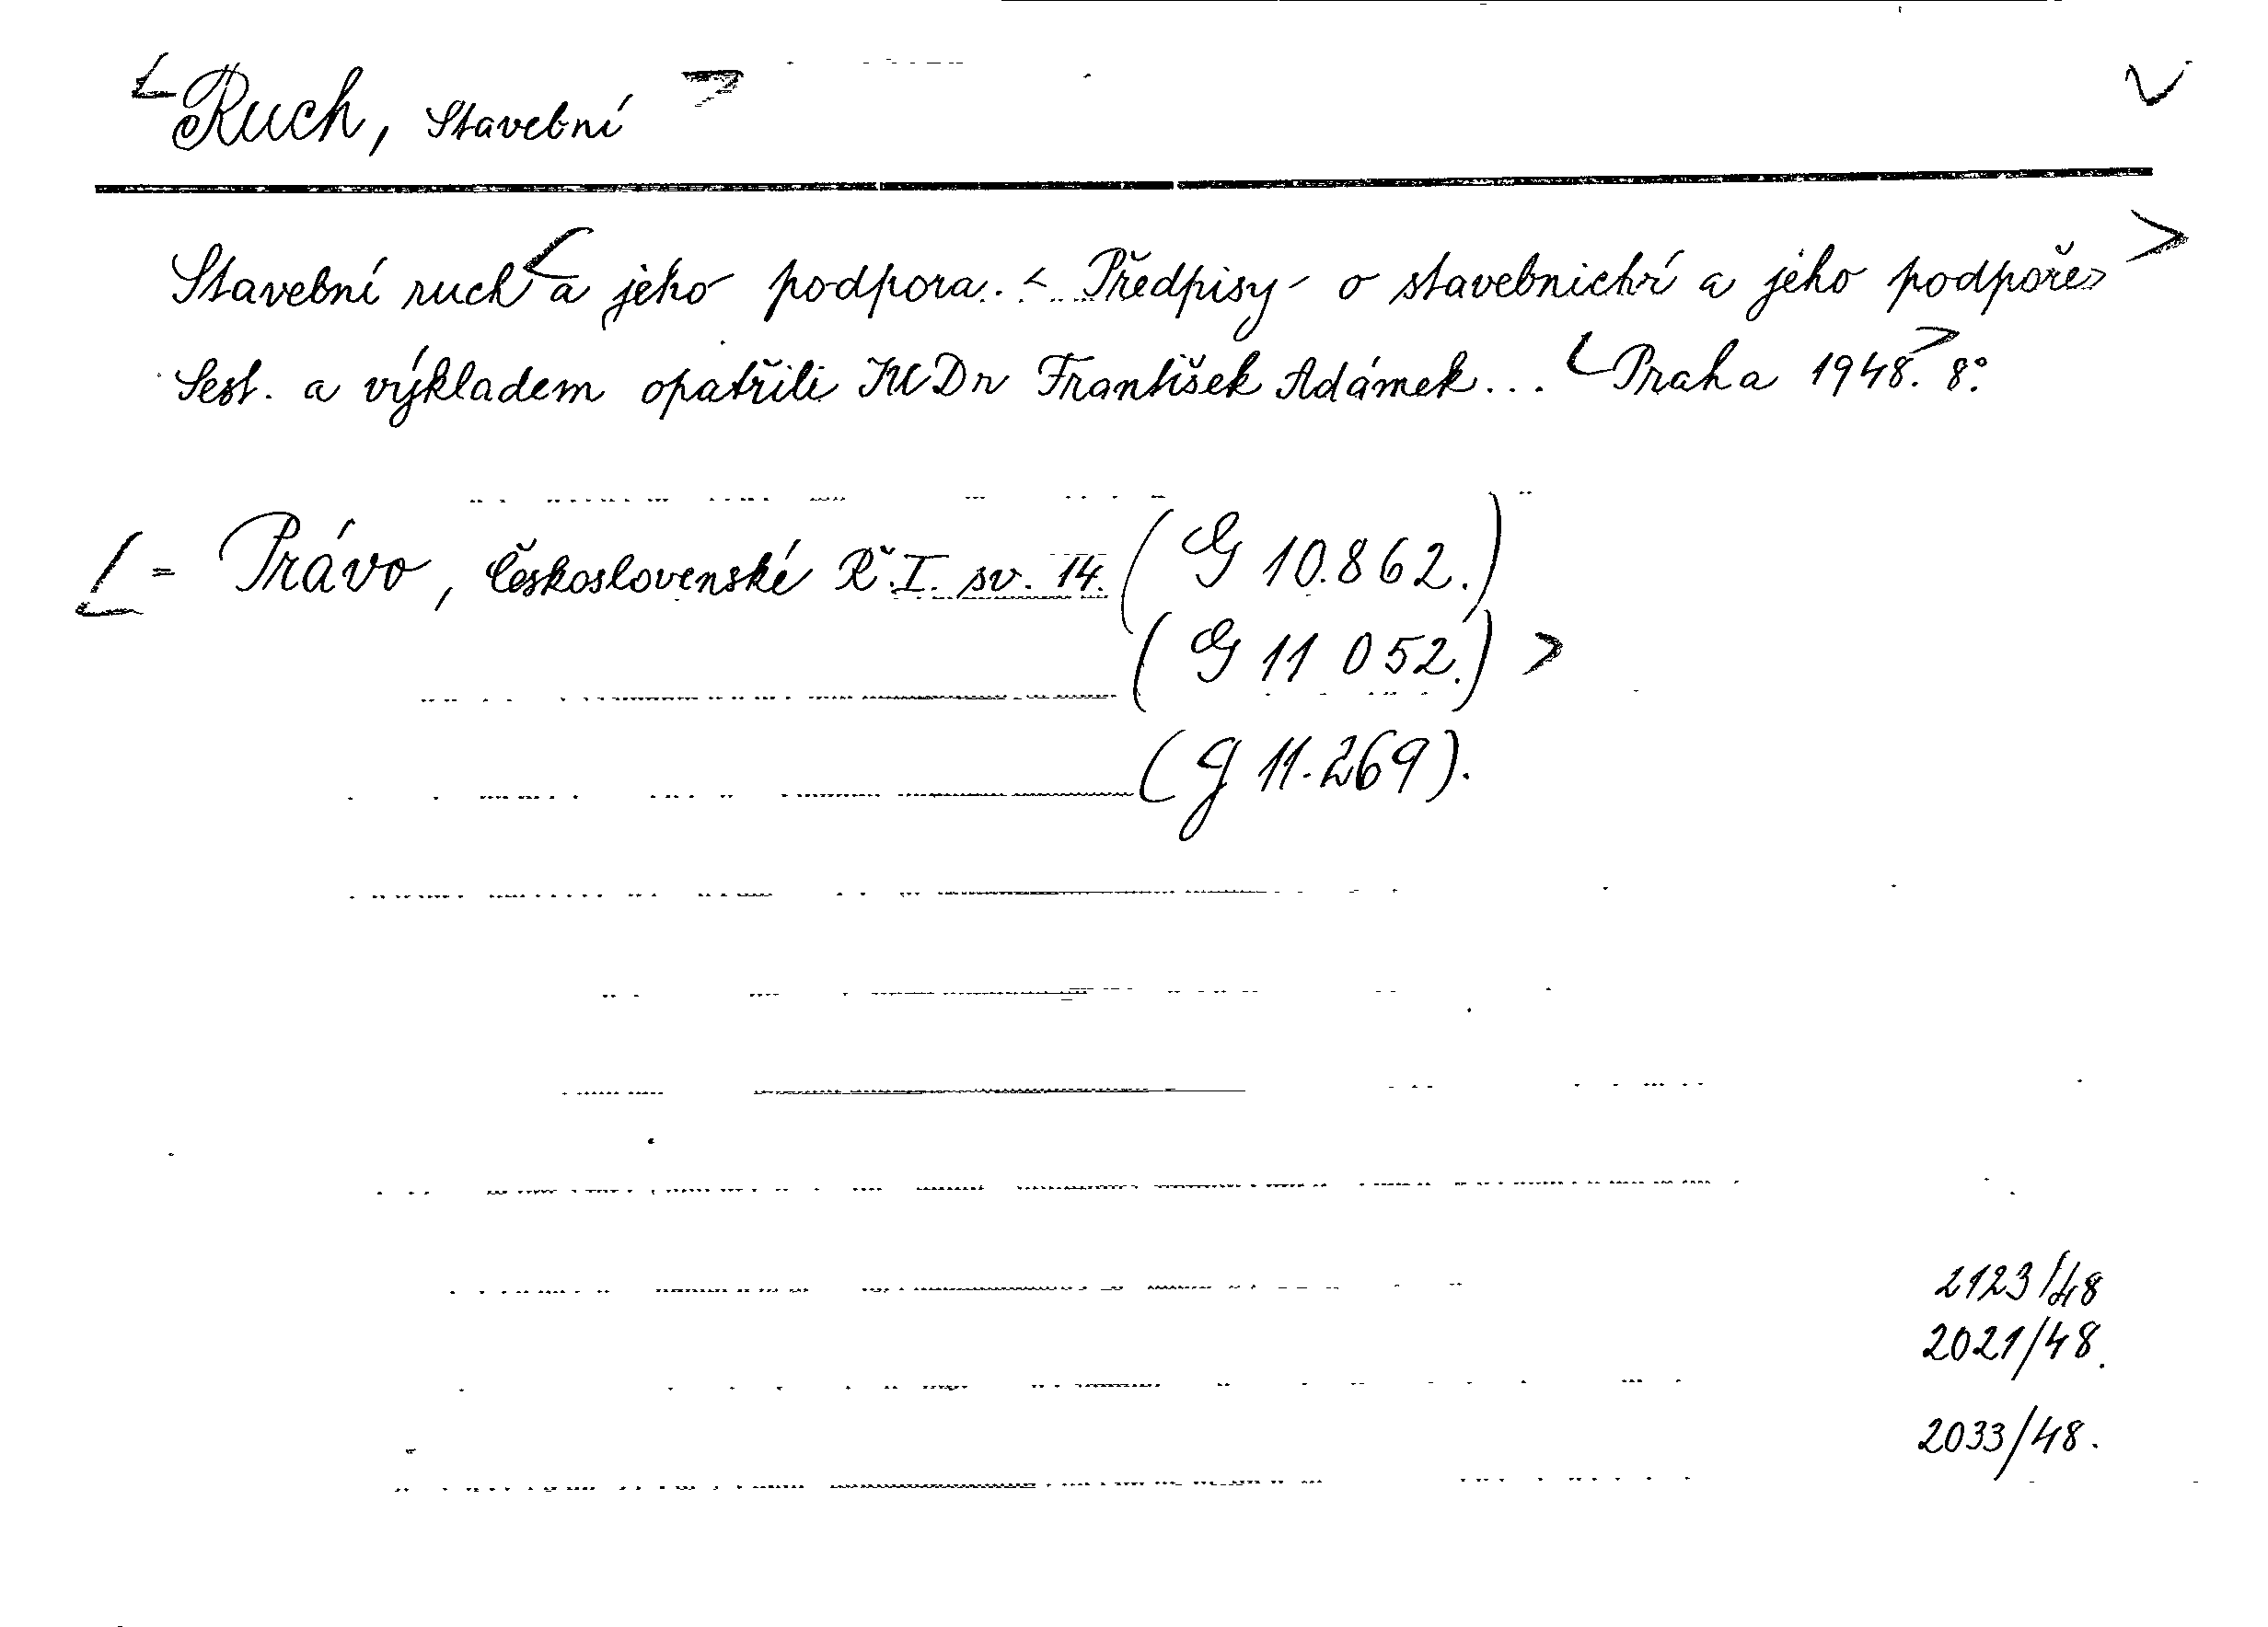 <Ruch, Stavební>
Stavební ruch <a jeho podpora. < Předpisy o stavebnictví a jeho podpoře>>
Sest. a výkladem opatřili JUDr František Adámek... <Praha 1948.> 8°.
<= Právo, Československé Ř.I. sv. 14. (G 10.862.)
(G 11 052.) >
(g 11.269).
2123/48
2021/48.
2033/48.